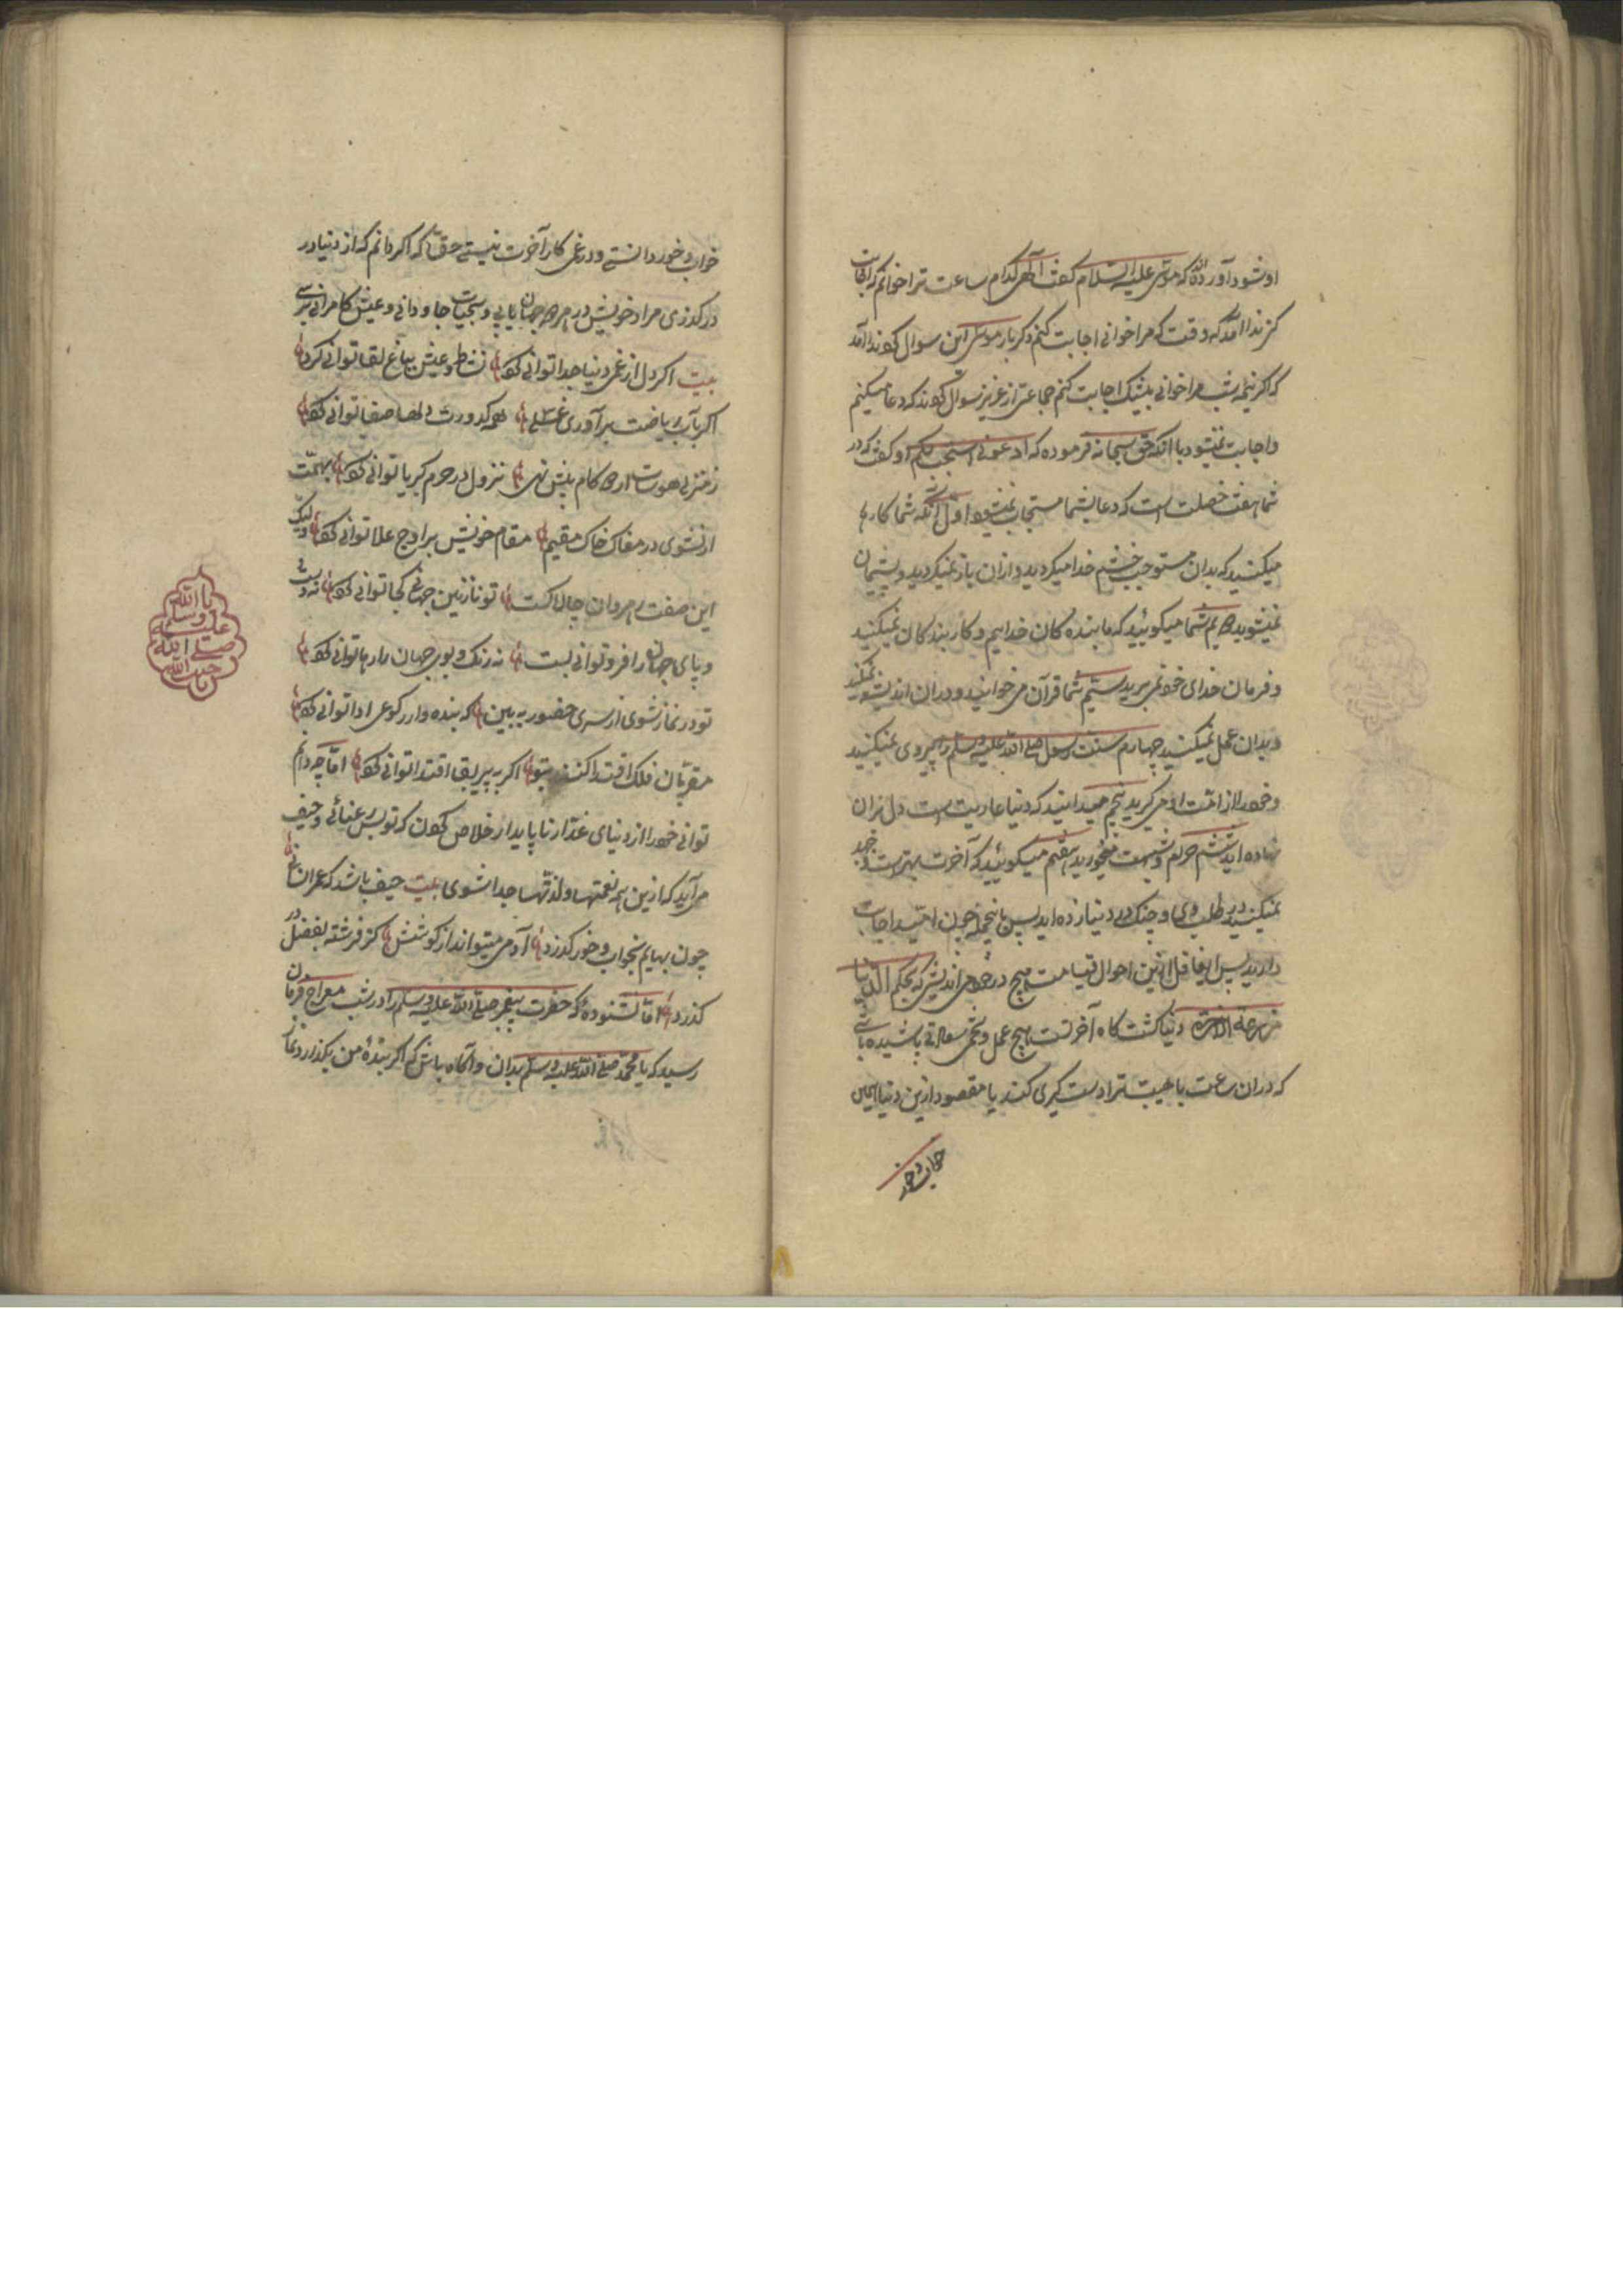 او شود آورده‌اند که موسی علیه السلام گفت الهی کدام ساعت ترا خوانم که اجابت
کنی ندا آمد که هر وقت که مرا خوانی اجابت کنم دکر بار موسی این سوال کرد ندا آمد
که اکر نیمه شب مرا خوانی بیشک اجابت کنم جماعتی از عزیز سوال کردند که دعا میکنیم
و اجابت نمیشود با آنکه حق سبحانه فرموده که ادعونی استجب لکم او گفت که در
شما هفت خصلت است که دعای شما مستجاب نمیشود اول آنکه شما کارها
میکنید که بدان مستوجب خشم خدا میکردید و از ان باز نمیکردید و پشیمان
نمیشوید دویم شما میکوئید که ما بنده کان خداییم و کار بندکان نمیکنید
و فرمان خدای خود نمی‌برید سیم شما قرآن می‌خوانید و در ان اندیشه نمیکنید
و بدان عمل نمیکنید چهارم سنت رسول صلی الله علیه وسلم را پیروی نمیکنید
و خود را از امت او می‌کیرید پنجم میدانید که دنیا عاریت است دل بران
نهاده اید ششم حرام و شبهت میخورید هفتم میکوئید که آخرت بهتر است و جهد
نمیکنید در طلب وی و چنک در دنیا زده اید پس باینجمله چون امید اجابت
دارید پس ای غافل ازین احوال قیامت هیچ در خود می‌اندیشی که بحکم الدنیا
مزرعة الاخرة دنیا کشت کاه آخرتست هیچ عمل و تخم سعادتی پاشیده باشی
که دران ساعت با هیبت ترا دست کیری کند یا مقصود ازین دنیا همین
خواب و خور
خواب و خور دانستی و در غم کار آخرت نیستی حقا که اکر دانم که از دنیا در
در کذری مراد خویش در هر دو جهان یابی و بحیات جاودانی و عیش کامرانی برسی
بیت اکر دل از غم دنیا جدا توانی کرد نشاط و عیش بباغ لقا توانی کرد
اکر بآب ریاضت برآوری غسلی همه کدورت دلها صفا توانی کرد
ز منزل هوس ار دو کام پیش نهی نزول در حرم کبریا توانی کرد بهمت
ار نشوی در مغاک خاک مقیم مقام خویش بر اوج علا توانی کرد ولیک
این صفت رهروان چالاکست تو نازنین جهانی کجا توانی کرد نه دست
و پای جهان را فرو توانی بست نه رنک و بوی جهان را رها توانی کرد
تو در نماز نشوی از سر حضور ببین که بنده وار رکوعی ادا توانی کرد
مقربان فلک اقتدا کنند بتو اکر به پیر بقا اقتدا توانی کرد اما چه دانم
توانی خود را از دنیای غدار ناپایدار خلاص کردن که تو بس رعنائی و حیف
می‌آید که ازین همه نعمتها و لذتها جدا شوی بیت حیف باشد که عمر انسانی
چون بهایم بخواب و خور کذرد آدمی میتواند از کوشش کز فرشته بفضل در
کذرد اما نشنوده که حضرت پیغمبر صلی الله علیه وسلم را در شب معراج فرمان
رسید که یا محمد صلی الله علیه وسلم بدان و آکاه باش که اکر بندهٔ من بکذارد نماز
یا الله
وسلم
علیه
صلی الله
یا حبیب الله
۸